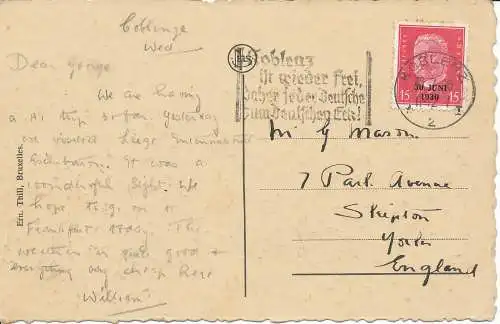 Coblenz
Wed
Dear George
We are having
a A1 trip so far. Yesterday
we visited Liege International
Exhibition. It was a
wonderful sight. We
hope to go on to
Frankfurt today. The
weather is quite good &
everything very cheap here
William
Ern. Thill, Bruxelles.
Coblenz
ist wieder frei,
daher jeder Deutsche
zum Deutschen Eck!
KOBLENZ
2
30. JUNI
1930
15 15
Mr G Mason
7 Park Avenue
Skipton
Yorks
England